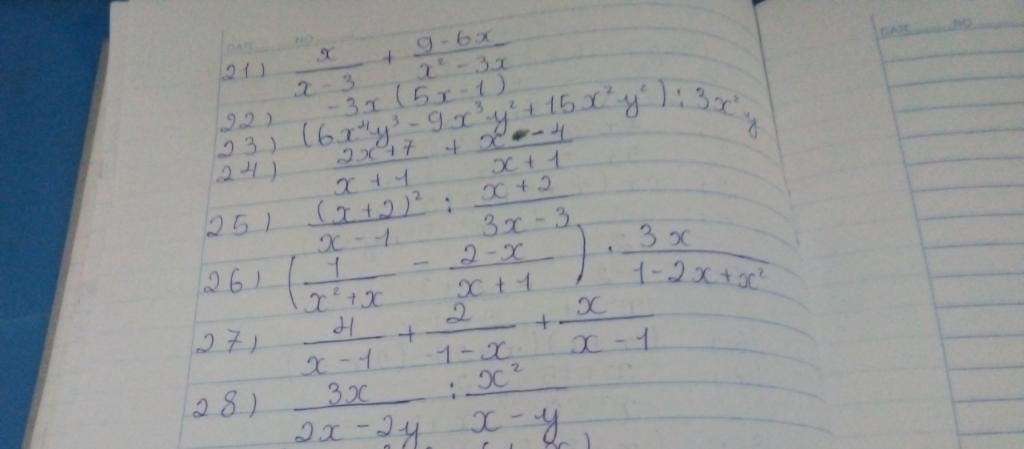 DATE NO
21) x/(x-3) + (9-6x)/(x²-3x)
22) -3x(5x-1)
23) (6x⁴y³-9x³y²+15x²y²):3x²y
24) (2x+7)/(x+1) + (x-4)/(x+1)
25) (x+2)²/(x-1) : (x+2)/(3x-3)
26) (1/(x²+x) - (2-x)/(x+1)) · 3x/(1-2x+x²)
27) 4/(x-1) + 2/(1-x) + x/(x-1)
28) 3x/(2x-2y) : x²/(x-y)
DATE NO